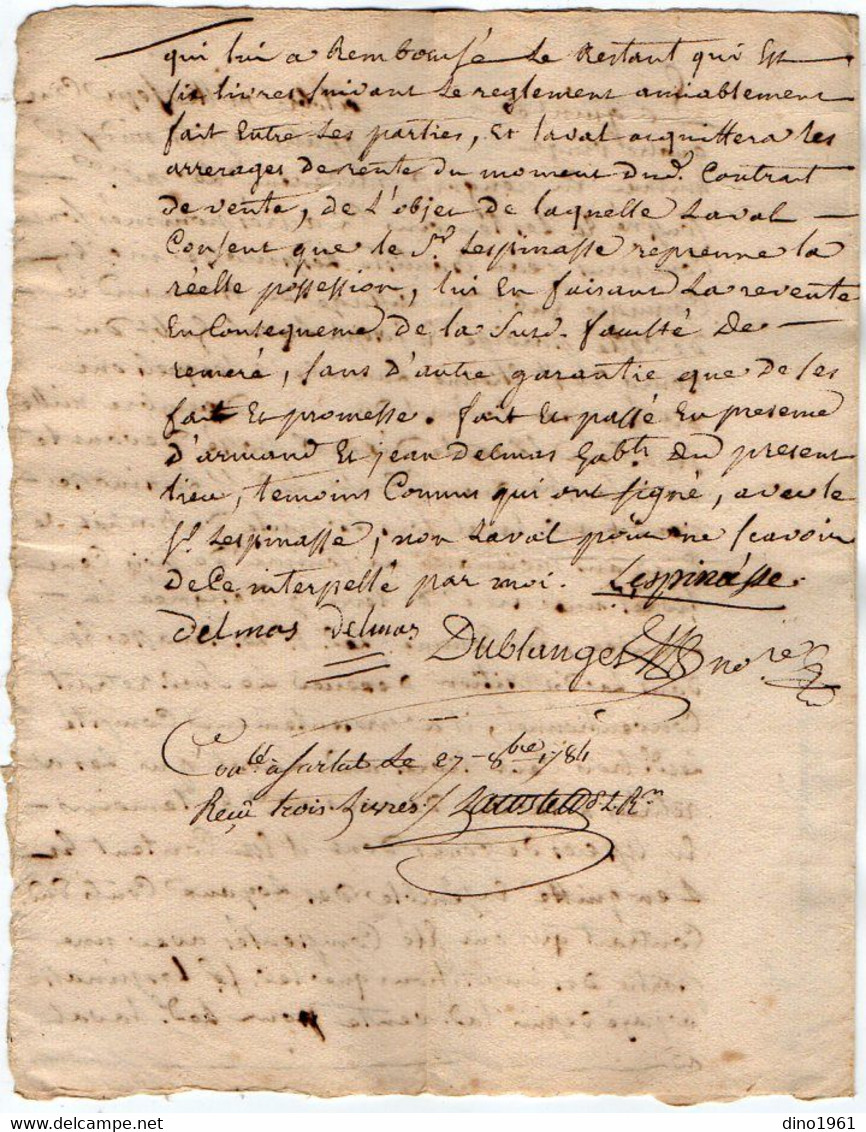 qui lui a Remboursé Le Restant qui Est
six livres suivant Le reglement amiablement
fait Entre Les parties, Et laval acquittera les
arrerages de rente du moment dud. Contrat
de vente, de L'objet de laquelle Laval —
Consent que le Sr. Lespinasse reprenne la
réelle possession, lui En faisant La revente
En Consequence de la Susd. faculté de —
remeré, sans d'autre garantie que de ses
fait Et promesse. fait Et passé En presence
d'armand Et jean Delmas habts. du present
lieu, temoins Connus qui ont signé, avec le
Sr. Lespinasse, non Laval pour ne scavoir
de Ce interpellé par moi. Lespinasse
delmas delmas Dublanges nore
Conlé. à Sarlat Le 27 8bre 1784
Reçu trois Livres
dino1961